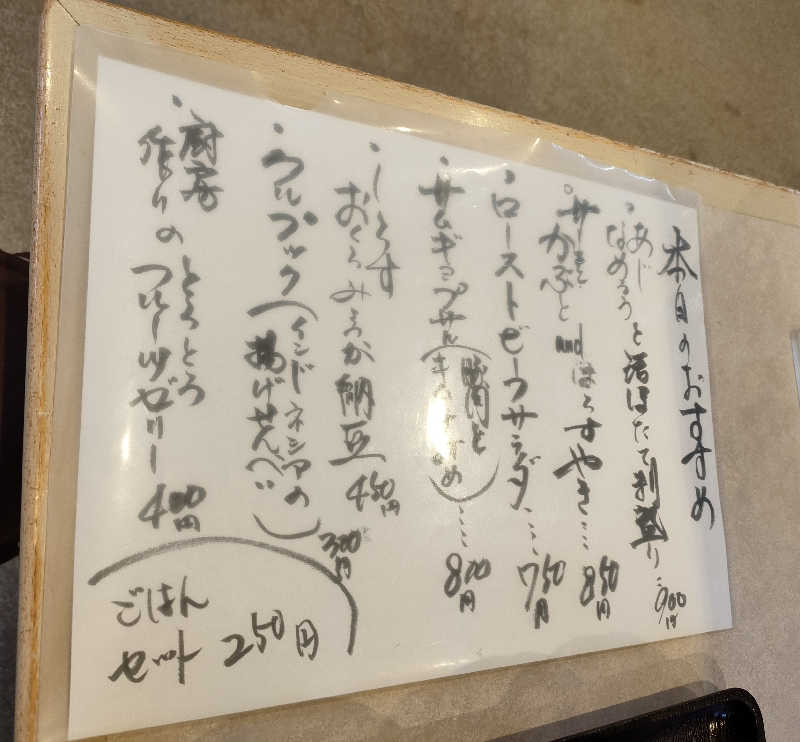 本日のおすすめ
・あじ
なめろうと活ほたて刺盛り…900円
かぶと and はらすやき…850円
・ローストビーフサラダ…750円
・サムギョプサル(豚肉と
キムチ炒め)…800円
・しらす
おくらみょうが納豆 450円
・クルプック(インドネシアの
揚げせんべい) 300円
・厨房
作りの とろとろ
フルーツゼリー 400円
ごはん
セット 250円